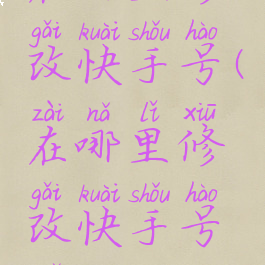 gǎi kuài shǒu hào
改快手号(
zài nǎ lǐ xiū
在哪里修
gǎi kuài shǒu hào
改快手号